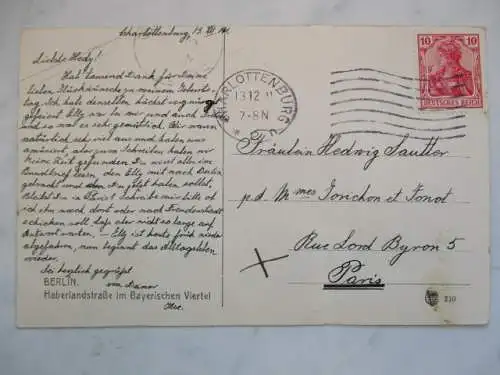 Charlottenburg, 13. XII. 11.
Liebste Hedy!
Hab tausend Dank für Deine
lieben Glückwünsche zu meinem Geburts-
tag. Ich habe denselben höchst vergnügt
gefeiert Elly war bei mir und auch
und so war es sehr gemütlich. Wir waren
natürlich sehr viel aus und haben uns
amüsiert, aber zum Schreiben haben wir
keine Zeit gefunden. Du wirst aber im
den Elly mit nach Berlin
gebracht und den Du jetzt haben sollst.
Bleibst Du in Paris? Schreibe mir bitte ob
ich ihn nach dort oder nach Freudenstadt
schicken soll, daß aber nicht so lange auf
Antwort warten. – Elly ist heute früh wieder
abgefahren, nun beginnt das Alltagsleben
wieder.
Sei herzlich gegrüßt
von Deiner
BERLIN.
Haberlandstraße im Bayerischen Viertel
CHARLOTTENBURG
13.12.11
7-8N
10 10
DEUTSCHES REICH
Fräulein Hedwig Sautter
p.d. Mmes Jonchon et Fonot
Rue Lord Byron 5
Paris
210